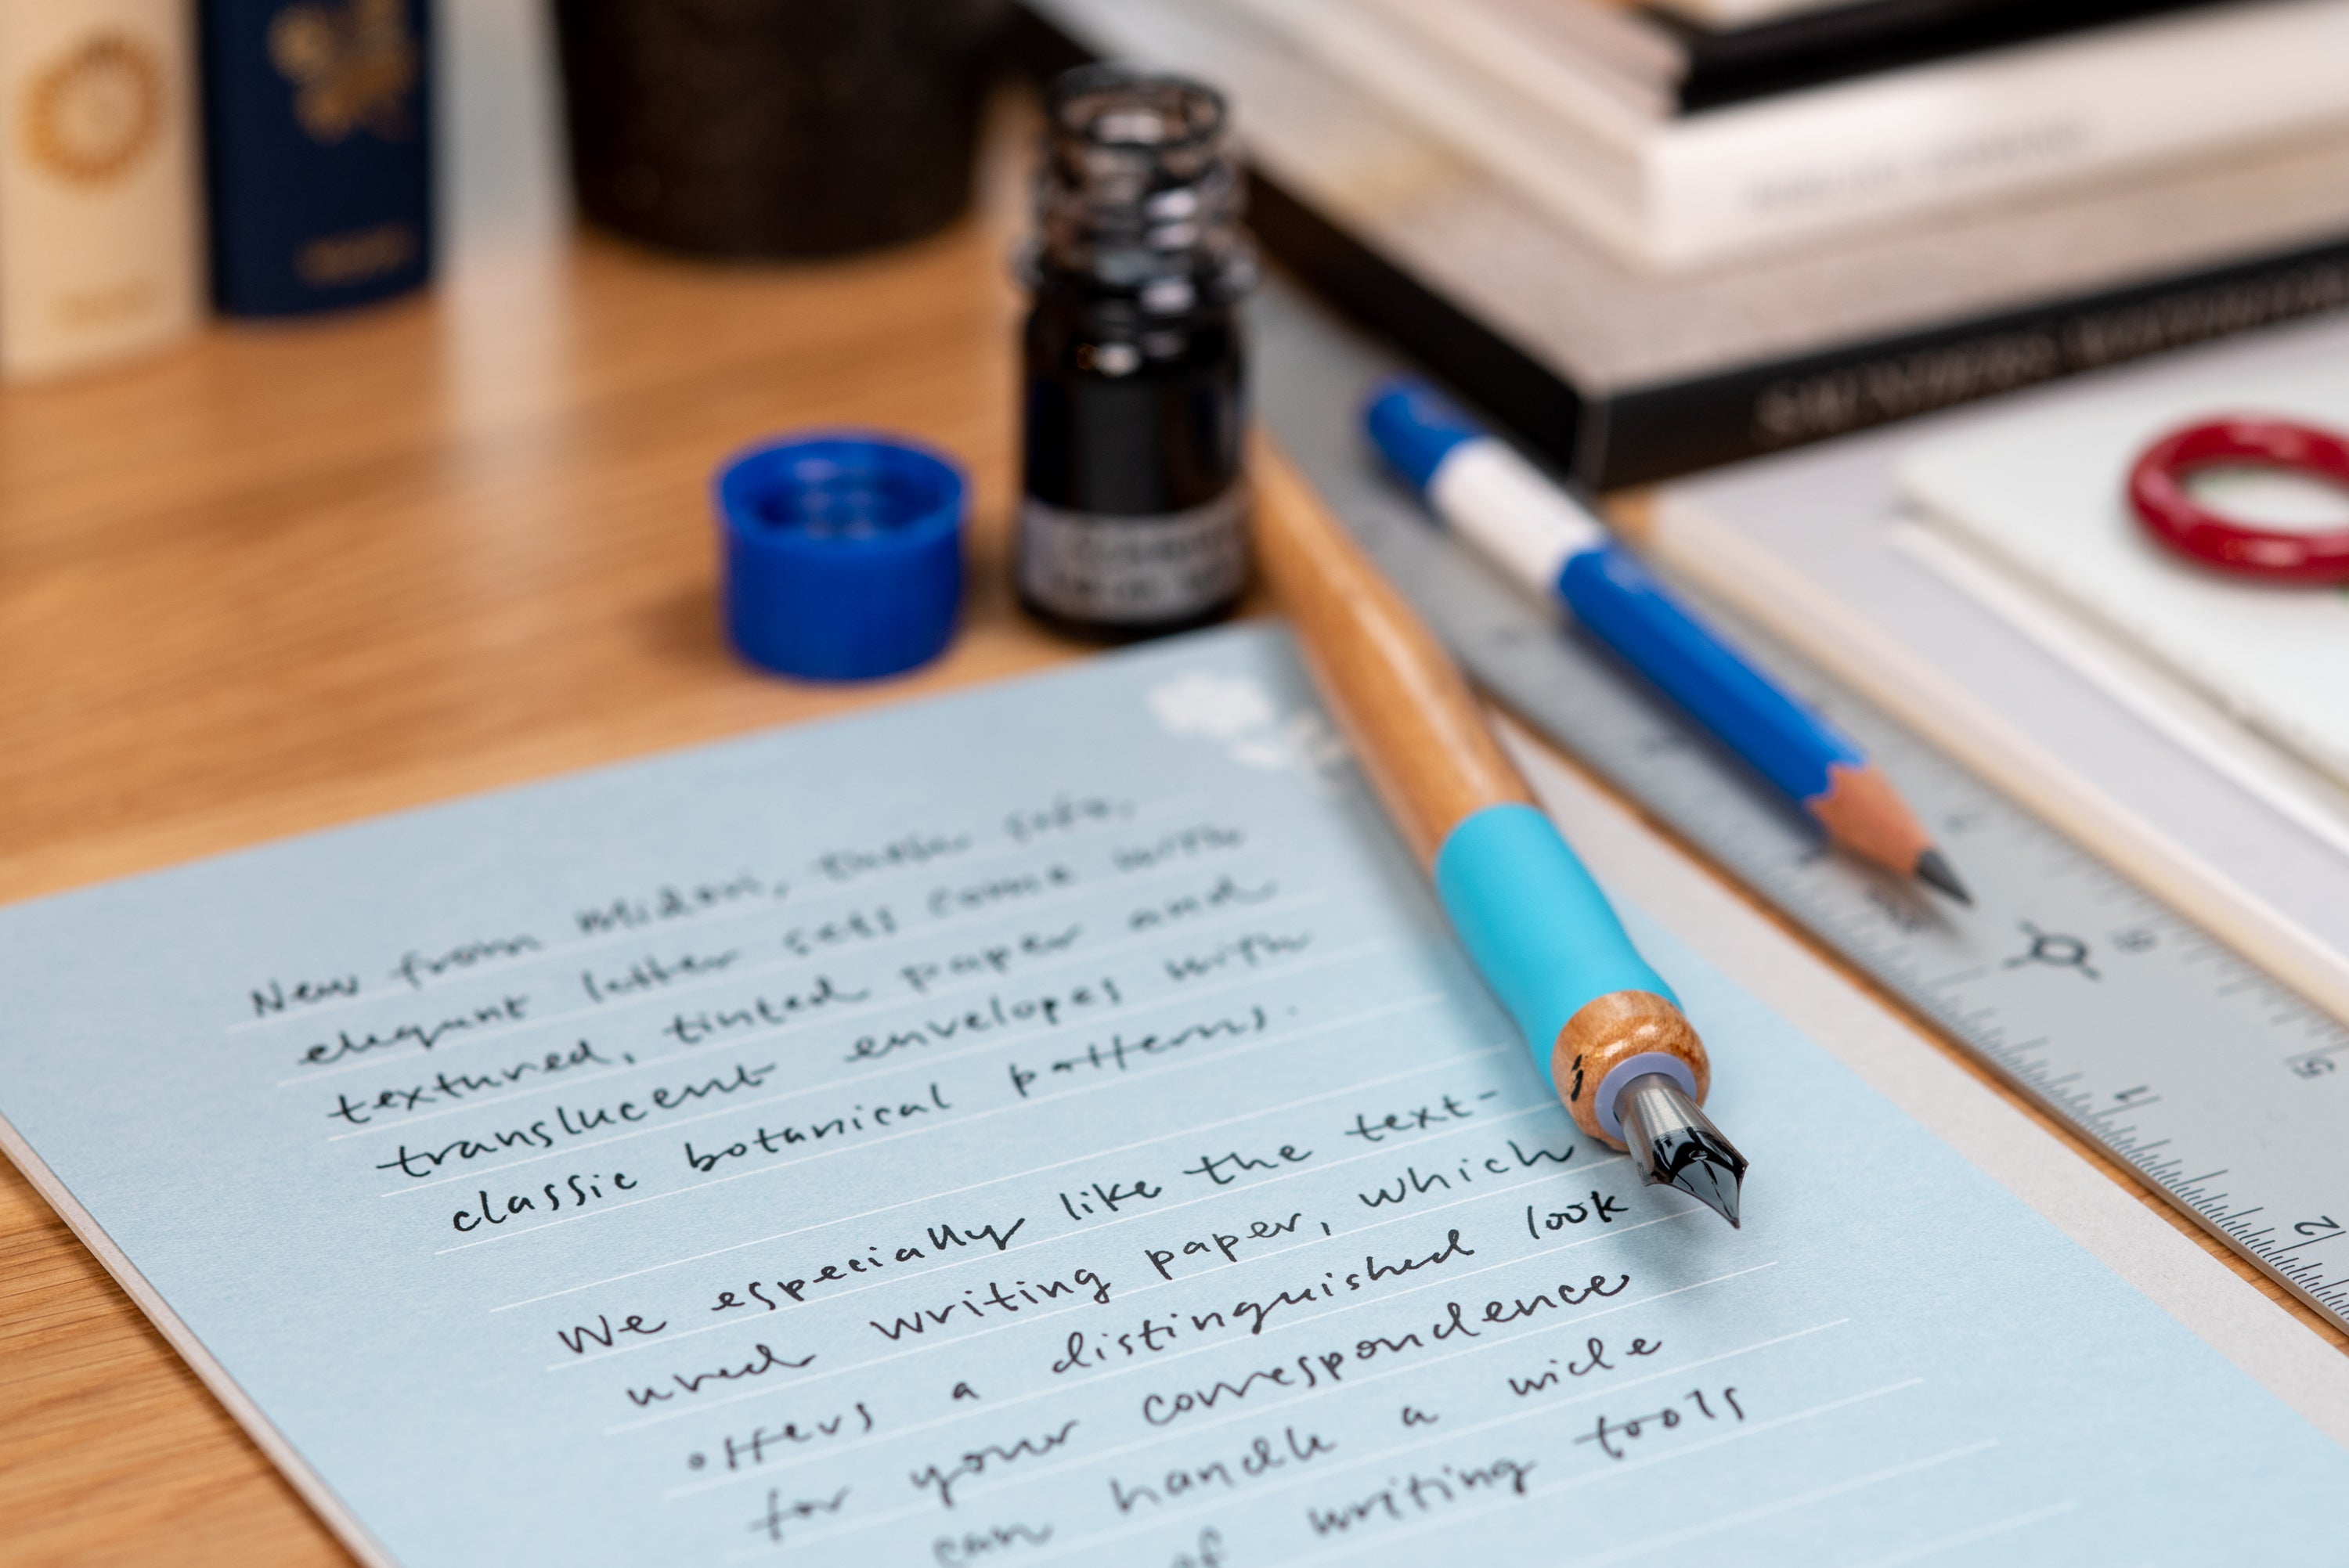 New from Midori, these soft,
elegant letter sets come with
textured, tinted paper and
translucent envelopes with
classic botanical patterns.
We especially like the text-
ured writing paper, which
offers a distinguished look
for your correspondence
can handle a wide
of writing tools
6
5
4
2